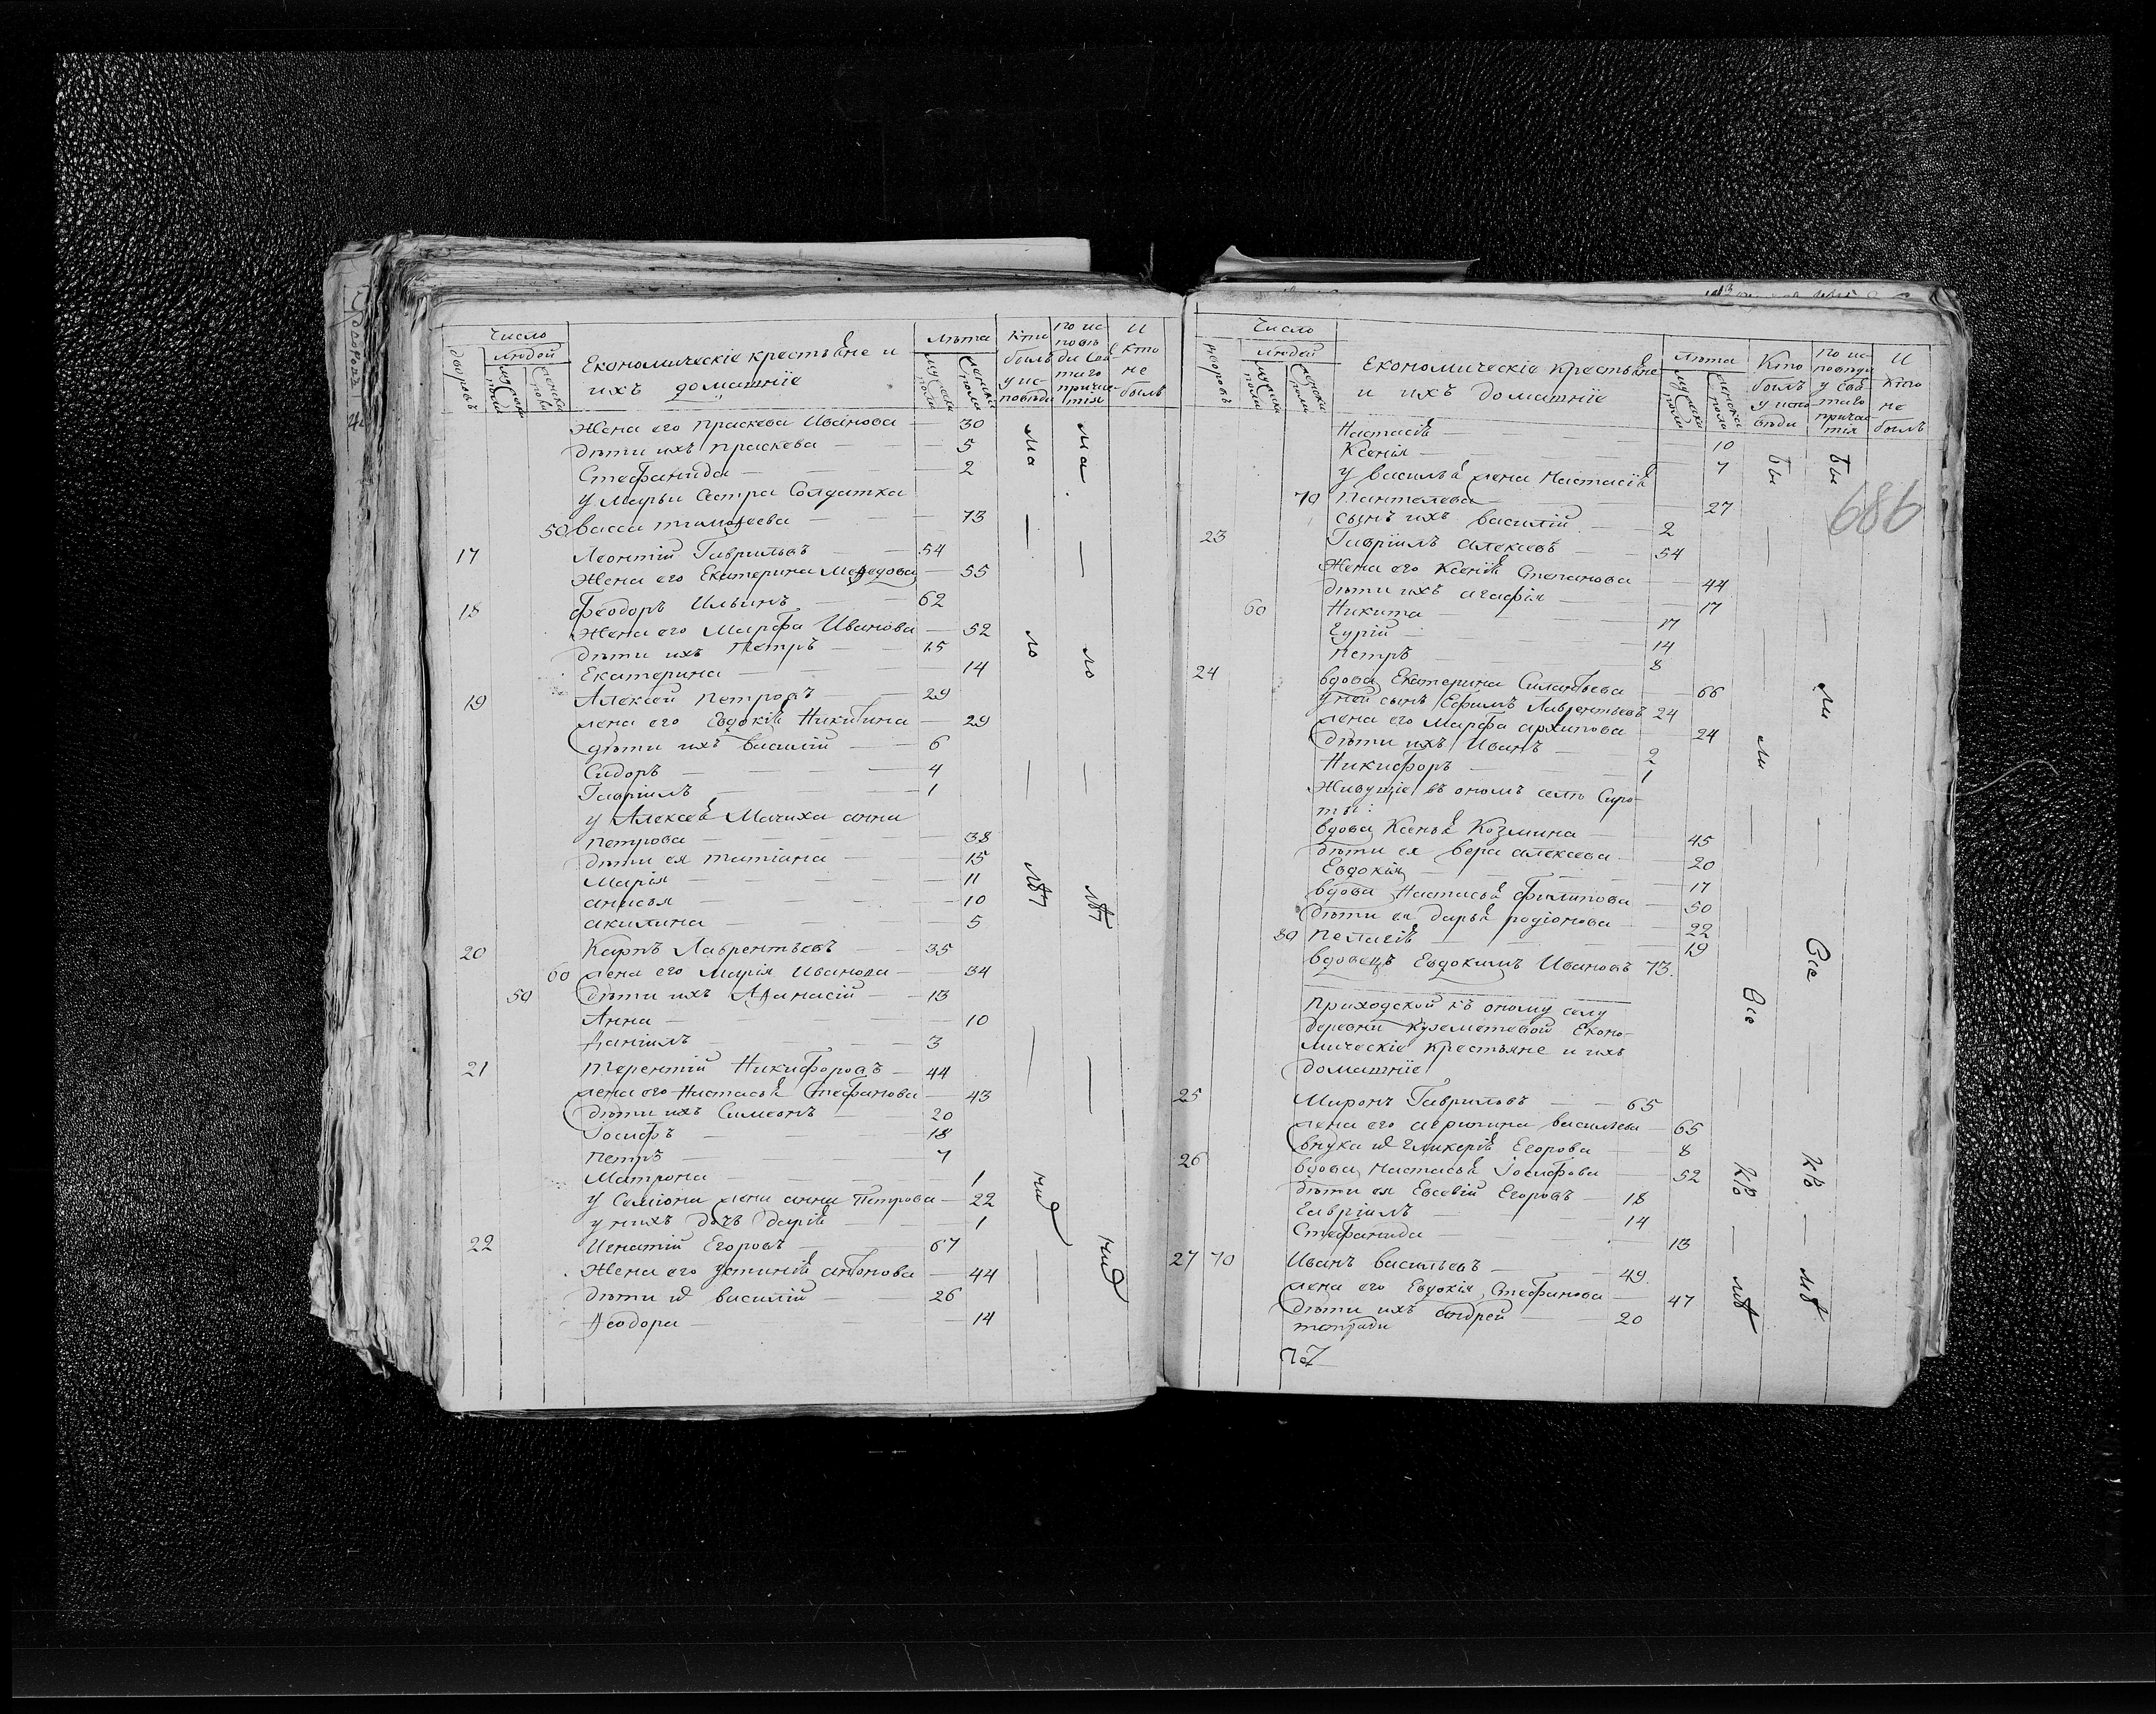 Число
людей
дворовъ
мужска полу
женска полу
Економическіе крестьяне и
ихъ домашніе
лѣта
мужска полу
женска полу
Кто былъ у исповѣди
по исповѣди и святаго причастія
И кто не былъ
Жена его Праскева Иванова — 30
дѣти ихъ Праскева — 5
Стефанида — 2
у Марьи сестра Солдатка
50 васса тимоѳеева — 73
17 Леонтій Гаврильвъ — 54
Жена его Екатерина — 55
18 Феодоръ Ильинъ — 62
Жена его Марфа Иванова — 52
дѣти ихъ Петръ — 15
Екатерина — 14
19 Алексей Петровъ — 29
жена его Евдокія Никитина — 29
дѣти ихъ василій — 6
Сидоръ — 4
Гавріилъ — 1
у Алексея Мачиха анна
петрова — 38
дѣти ея татіана — 15
Марія — 11
анисья — 10
акилина — 5
20 Карпъ Лаврентьевъ — 35
60 жена его Марія Иванова — 34
50 дѣти ихъ Аѳанасій — 13
Анна — 10
Даніилъ — 3
21 Терентій Никифоровъ — 44
жена его Настасья Стефанова — 43
дѣти ихъ Симеонъ 20
Іосифъ — 18
петръ — 7
Матрона — 1
у Семіона жена анна Петрова — 22
у нихъ дочь Дарія — 1
22 Игнатій Егоровъ — 67
Жена его устинія антонова — 44
дѣти василій — 26
Ѳеодора — 14
Число
людей
дворовъ
мужска полу
женска полу
Економическіе крестьяне
и ихъ домашніе
лѣта
мужска полу
женска полу
Кто былъ у исповѣди
по исповѣди у святаго причастія
И кто не былъ
Настасія — 10
Ксенія — 7
у василья жена Настасія
70 Панталева — 27
сынъ ихъ василій — 2
23 Гавріилъ алексевъ — 54
Жена его Ксенія Степанова — 44
дѣти ихъ агафія — 17
60 Никита — 17
Гурій — 14
петръ — 8
24 вдова Екатерина Силантьева — 66
у ней сынъ Ефимъ Лаврентьевъ 24
жена его Марфа архипова — 24
дѣти ихъ Иванъ — 2
Никифоръ — 1
Живущіе въ ономъ селѣ Сиро-
ты:
вдова Ксенья Козмина — 45
дѣти ея вера алексева — 20
Евдокія — 17
вдова Настасья Филипова — 50
дѣти ея дарья родіонова — 22
80 пелагія — 19
вдовецъ Евдокимъ Ивановъ 73.
Приходской къ оному селу
деревни Економическіе крестьяне и ихъ
домашніе
25 Миронъ Гаврильвъ — 65
жена его васильева — 65
внука гликерія Егорова — 8
26 вдова настасья Іосифова — 52
дѣти ея Евсевій Егоровъ — 18
Гавріилъ — 14
Стефанида — 13
27 70 Иванъ васильевъ — 49
жена его Евдокія Стефанова — 47
дѣти ихъ андрей — 20
686